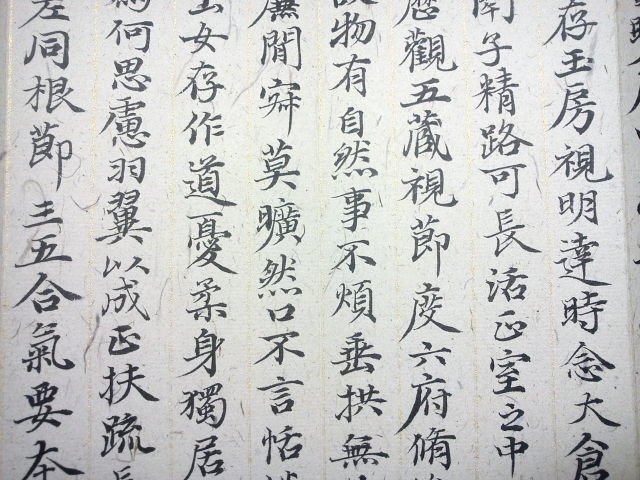 存玉房視明達時念大倉
子精路可長活正室之中
歷觀五藏視節度六府脩
物有自然事不煩垂拱無
廉閒寂莫曠然口不言恬
玉女存作道憂柔身獨居
何思慮羽翼以成正扶疏
同根節三五合氣要本